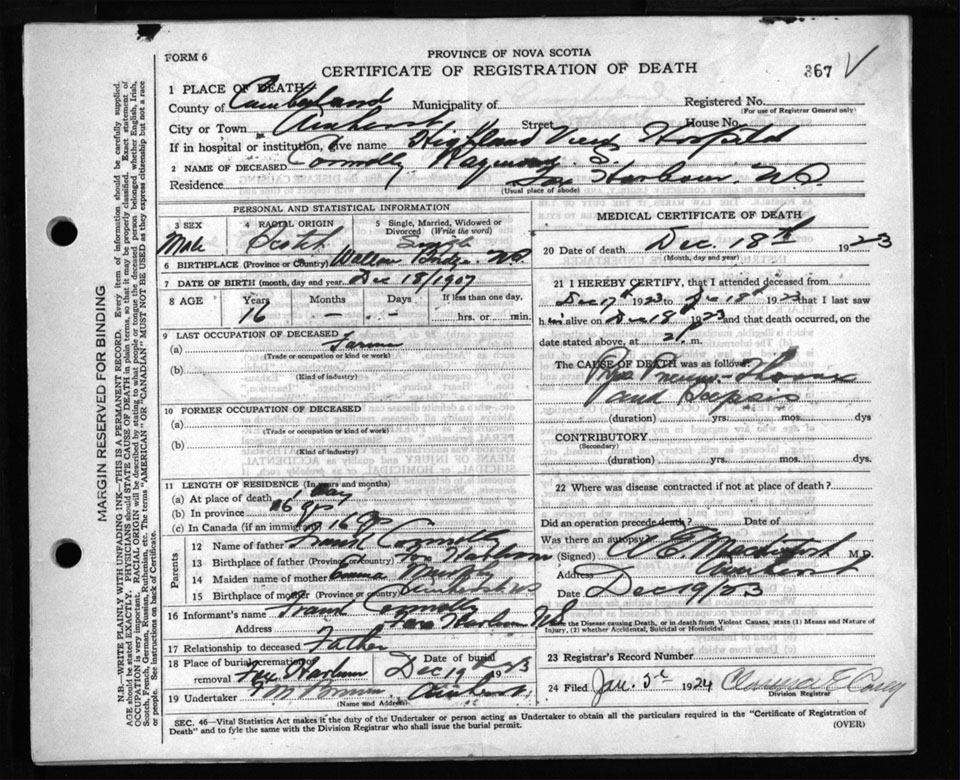 FORM 6
PROVINCE OF NOVA SCOTIA
CERTIFICATE OF REGISTRATION OF DEATH
367 V
1 PLACE OF DEATH
County of Cumberland Municipality of Registered No.
(For use of Registrar General only)
City or Town Amherst Street House No.
If in hospital or institution, give name Highland View Hospital
2 NAME OF DECEASED Connolly Raymond S.
Residence Fox Harbour, N.S.
(Usual place of abode)
PERSONAL AND STATISTICAL INFORMATION
3 SEX 4 RACIAL ORIGIN 5 Single, Married, Widowed or Divorced (Write the word)
Male Scotch Single
6 BIRTHPLACE (Province or Country) Wallace Bridge. N.S.
7 DATE OF BIRTH (month, day and year) Dec 18/1907
8 AGE Years Months Days If less than one day,
16 — — hrs. or min.
9 LAST OCCUPATION OF DECEASED
(a) Farmer
(Trade or occupation or kind or work)
(b)
(Kind of industry)
10 FORMER OCCUPATION OF DECEASED
(a)
(Trade or occupation or kind of work)
(b)
(Kind of industry)
11 LENGTH OF RESIDENCE (In years and months)
(a) At place of death 1 Day
(b) In province 16 yrs
(c) In Canada (if an immigrant) 16 yrs
Parents
12 Name of father Frank Connolly
13 Birthplace of father (Province or country) Fox Harbour
14 Maiden name of mother
15 Birthplace of mother (Province or country)
16 Informant's name Frank Connolly
Address Fox Harbour N.S.
17 Relationship to deceased Father
18 Place of burial, cremation or removal Fox Harbour Date of burial Dec 19 1923
19 Undertaker Amherst
(Name and Address)
MEDICAL CERTIFICATE OF DEATH
20 Date of death Dec. 18th 1923
(Month, day and year)
21 I HEREBY CERTIFY, that I attended deceased from
Dec 17th 1923 to Dec 18th 1923 that I last saw
him alive on Dec 18th 1923 and that death occurred, on the
date stated above, at m.
The CAUSE OF DEATH was as follows:
Pyo Pneumo-Thorax
and Sepsis
(duration) yrs. mos. dys
CONTRIBUTORY
(Secondary)
(duration) yrs. mos. dys.
22 Where was disease contracted if not at place of death?
Did an operation precede death? Date of
Was there an autopsy?
(Signed) M.D.
Address Amherst
Date Dec 19/23
State the Disease causing Death, or in death from Violent Causes, state (1) Means and Nature of Injury, (2) whether Accidental, Suicidal or Homicidal.
23 Registrar's Record Number
24 Filed Jan. 3rd 1924
Division Registrar
SEC. 46—Vital Statistics Act makes it the duty of the Undertaker or person acting as Undertaker to obtain all the particulars required in the "Certificate of Registration of
Death" and to fyle the same with the Division Registrar who shall issue the burial permit.
(OVER)
MARGIN RESERVED FOR BINDING
N.B.—WRITE PLAINLY WITH UNFADING INK—THIS IS A PERMANENT RECORD. Every item of information should be carefully supplied.
AGE should be stated EXACTLY. PHYSICIANS should STATE CAUSE OF DEATH in plain terms, so that it may be properly classified. Exact statement of
OCCUPATION is very important. RACIAL ORIGIN will be described by stating to what people or tongue the deceased person belonged whether English, Irish,
Scotch, French, German, Russian, Ruthenian, etc. The terms "AMERICAN" OR "CANADIAN" MUST NOT BE USED as they express citizenship but not a race
or people. See instructions on back of Certificate.